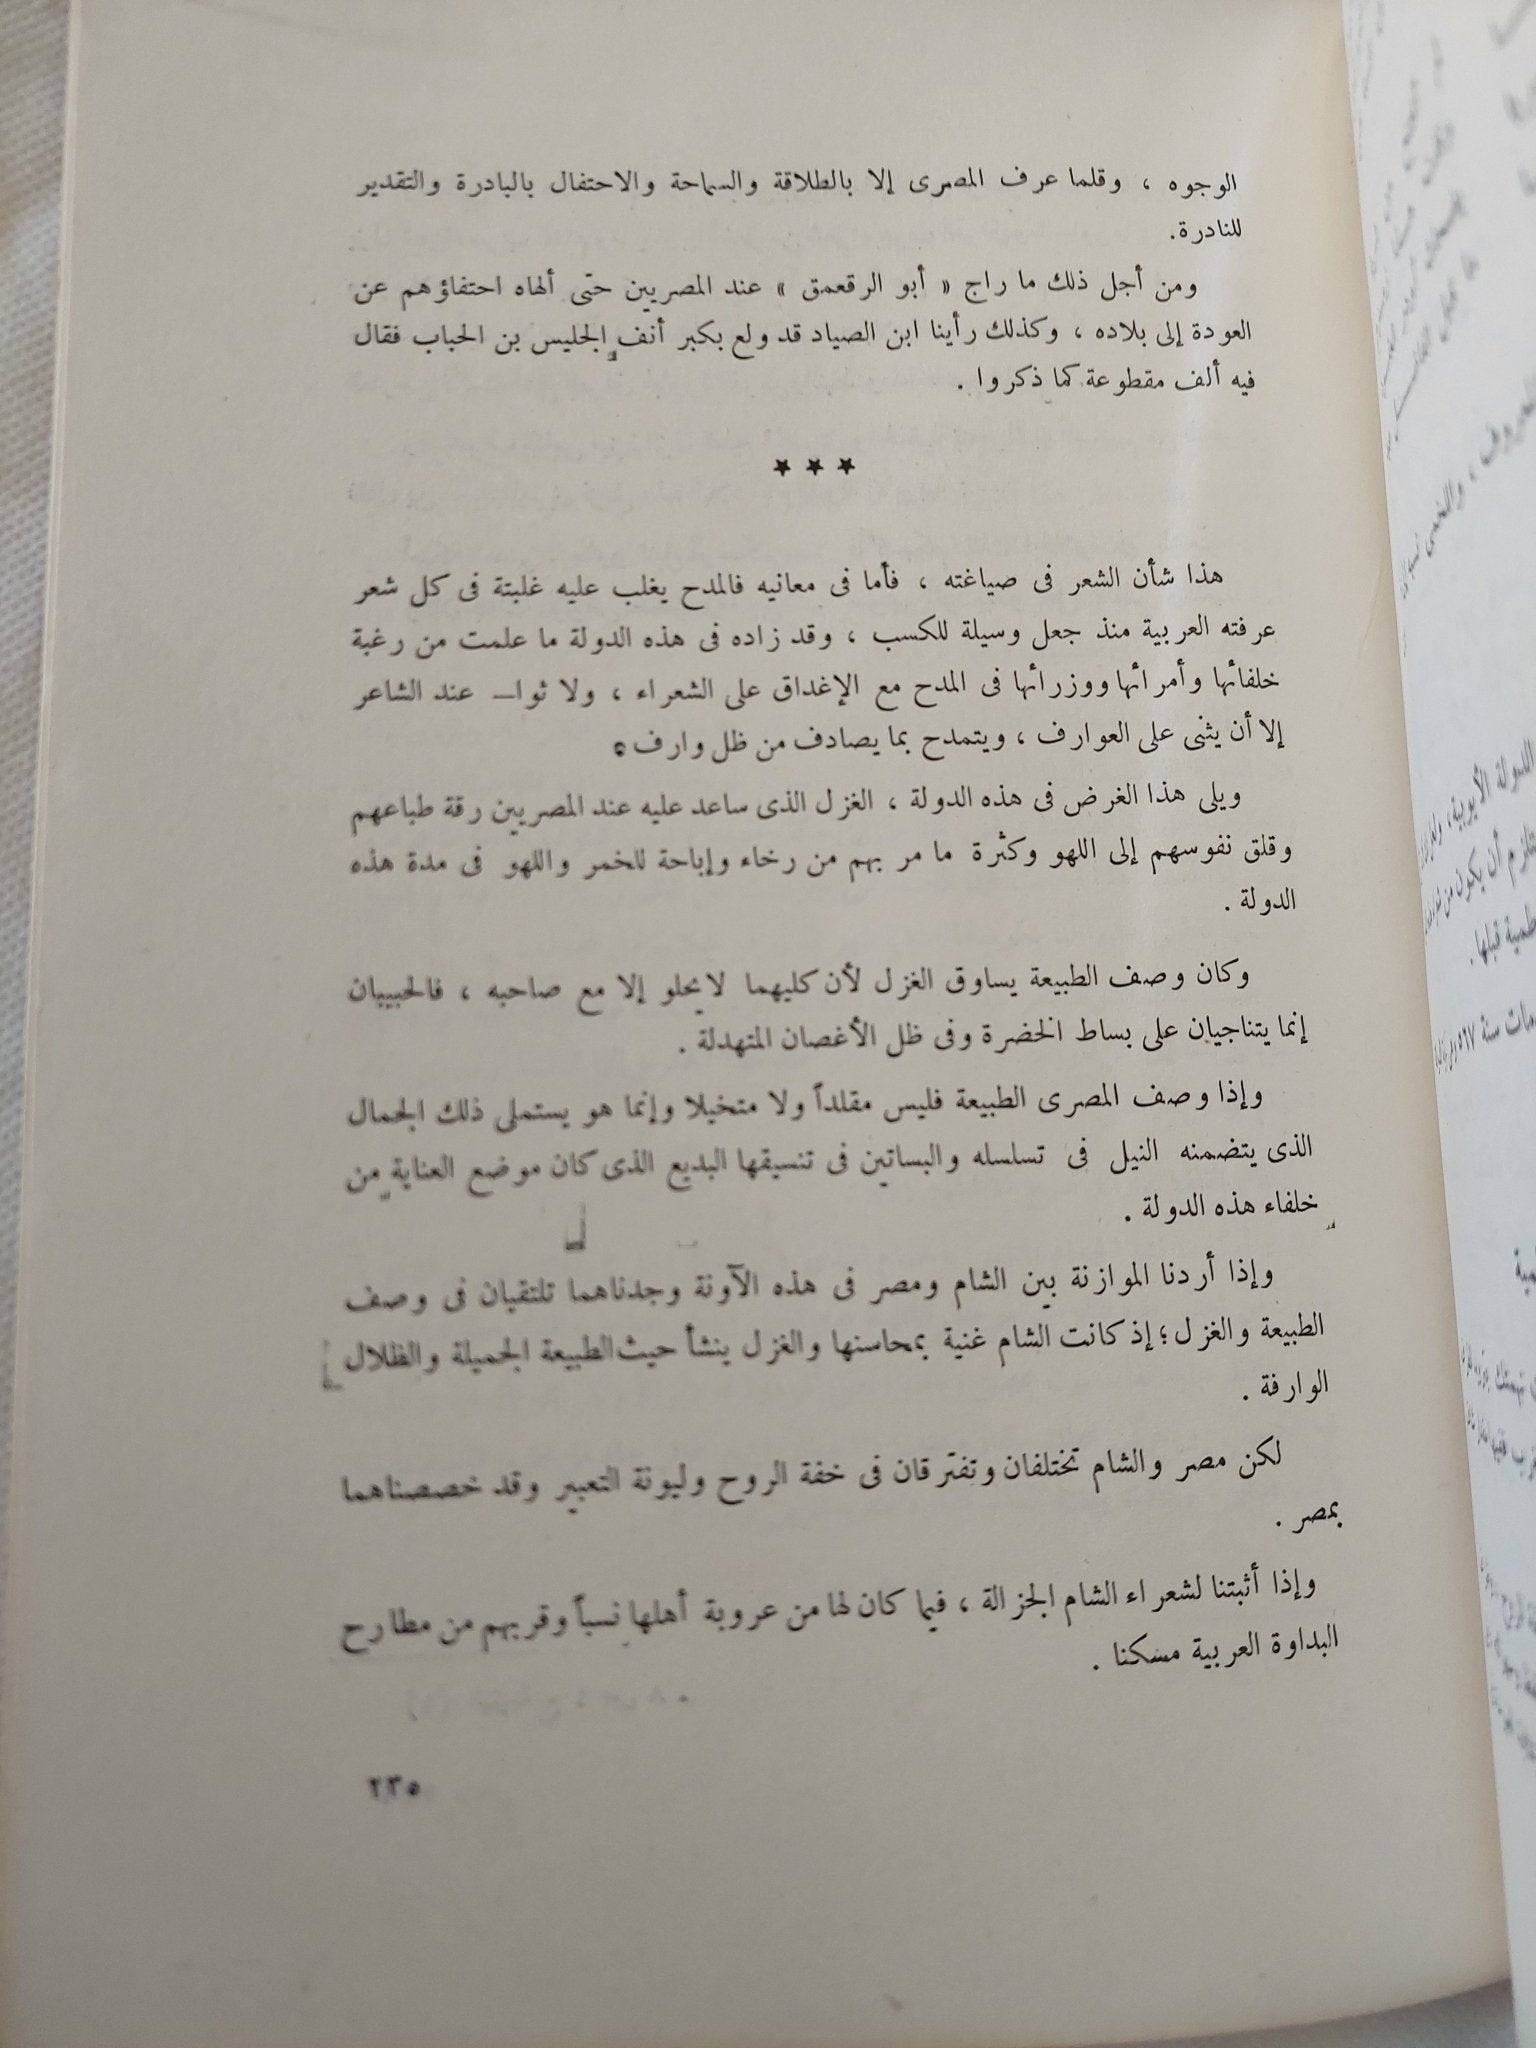 الوجوه ، وقلما عرف المصرى إلا بالطلاقة والسماحة والاحتفال بالبادرة والتقدير
للنادرة.
ومن أجل ذلك ما راج « أبو الرقعمق » عند المصريين حتى ألهاه احتفاؤهم عن
العودة إلى بلاده ، وكذلك رأينا ابن الصياد قد ولع بكبر أنف الجليس بن الحباب فقال
فيه ألف مقطوعة كما ذكروا .
★ ★ ★
هذا شأن الشعر فى صياغته ، فأما فى معانيه فالمدح يغلب عليه غلبتة فى كل شعر
عرفته العربية منذ جعل وسيلة للكسب ، وقد زاده فى هذه الدولة ما علمت من رغبة
خلفائها وأمرائها ووزرائها فى المدح مع الإغداق على الشعراء ، ولا ثوا عند الشاعر
إلا أن يثنى على العوارف ، ويتمدح بما يصادف من ظل وارف .
ويلى هذا الغرض فى هذه الدولة ، الغزل الذى ساعد عليه عند المصريين رقة طباعهم
وقلق نفوسهم إلى اللهو وكثرة ما مر بهم من رخاء وإباحة للخمر واللهو فى مدة هذه
الدولة .
وكان وصف الطبيعة يساوق الغزل لأن كليهما لا يحلو إلا مع صاحبه ، فالحبيبان
إنما يتناجيان على بساط الخضرة وفى ظل الأغصان المتهدلة .
وإذا وصف المصرى الطبيعة فليس مقلداً ولا متخيلا وإنما هو يستملى ذلك الجمال
الذى يتضمنه النيل فى تسلسله والبساتين فى تنسيقها البديع الذى كان موضع العناية من
خلفاء هذه الدولة .
وإذا أردنا الموازنة بين الشام ومصر فى هذه الآونة وجدناهما تلتقيان فى وصف
الطبيعة والغزل ؛ إذ كانت الشام غنية بمحاسنها والغزل ينشأ حيث الطبيعة الجميلة والظلال
الوارفة .
لكن مصر والشام تختلفان وتفترقان فى خفة الروح وليونة التعبير وقد خصصناهما
بمصر .
وإذا أثبتنا لشعراء الشام الجزالة ، فيما كان لها من عروبة أهلها نسباً وقربهم من مطارح
البداوة العربية مسكنا .
٢٣٥